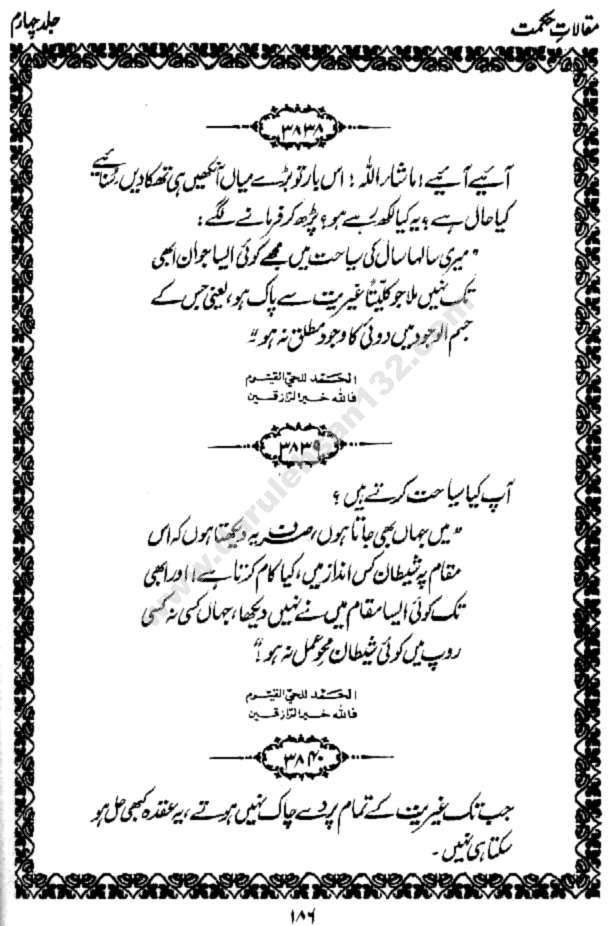 مقالاتِ حکمت
جلد چہارم
۳۸۳۸
آئیے آئیے! ماشاء اللہ! اس بار تو بڑے میاں آنکھیں ہی تھکا دیں سُنائیے
کیا حال ہے؟ یہ کیا لکھ رہے ہو؟ پڑھ کر فرمانے لگے:
"میری سالہا سال کی سیاحت میں مجھے کوئی ایسا جوان ابھی
تک نہیں ملا جو کلیّتاً غیریت سے پاک ہو، یعنی جس کے
جسم الوجود میں دوئی کا وجود مطلق نہ ہو"
الحَمد للحیّ القیّوم
فاللہ خیر الرّازقین
۳۸۳۹
آپ کیا سیاحت کرتے ہیں؟
"میں جہاں بھی جاتا ہوں، صرف یہ دیکھتا ہوں کہ اس
مقام پہ شیطان کس انداز میں، کیا کام کرتا ہے! اور ابھی
تک کوئی ایسا مقام میں نے نہیں دیکھا، جہاں کسی نہ کسی
روپ میں کوئی شیطان محوِ عمل نہ ہو!"
الحَمد للحیّ القیّوم
فاللہ خیر الرّازقین
۳۸۴۰
جب تک غیریت کے تمام پردے چاک نہیں ہوتے، یہ عقدہ کبھی حل ہو
سکتا ہی نہیں۔
۱۸۶
www.darulehsan132.com